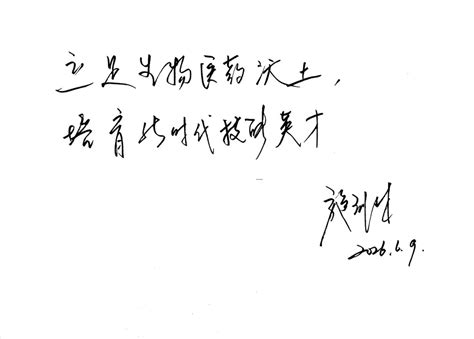 立足生物医药沃土，
培育新时代技能英才
2026.1.9.